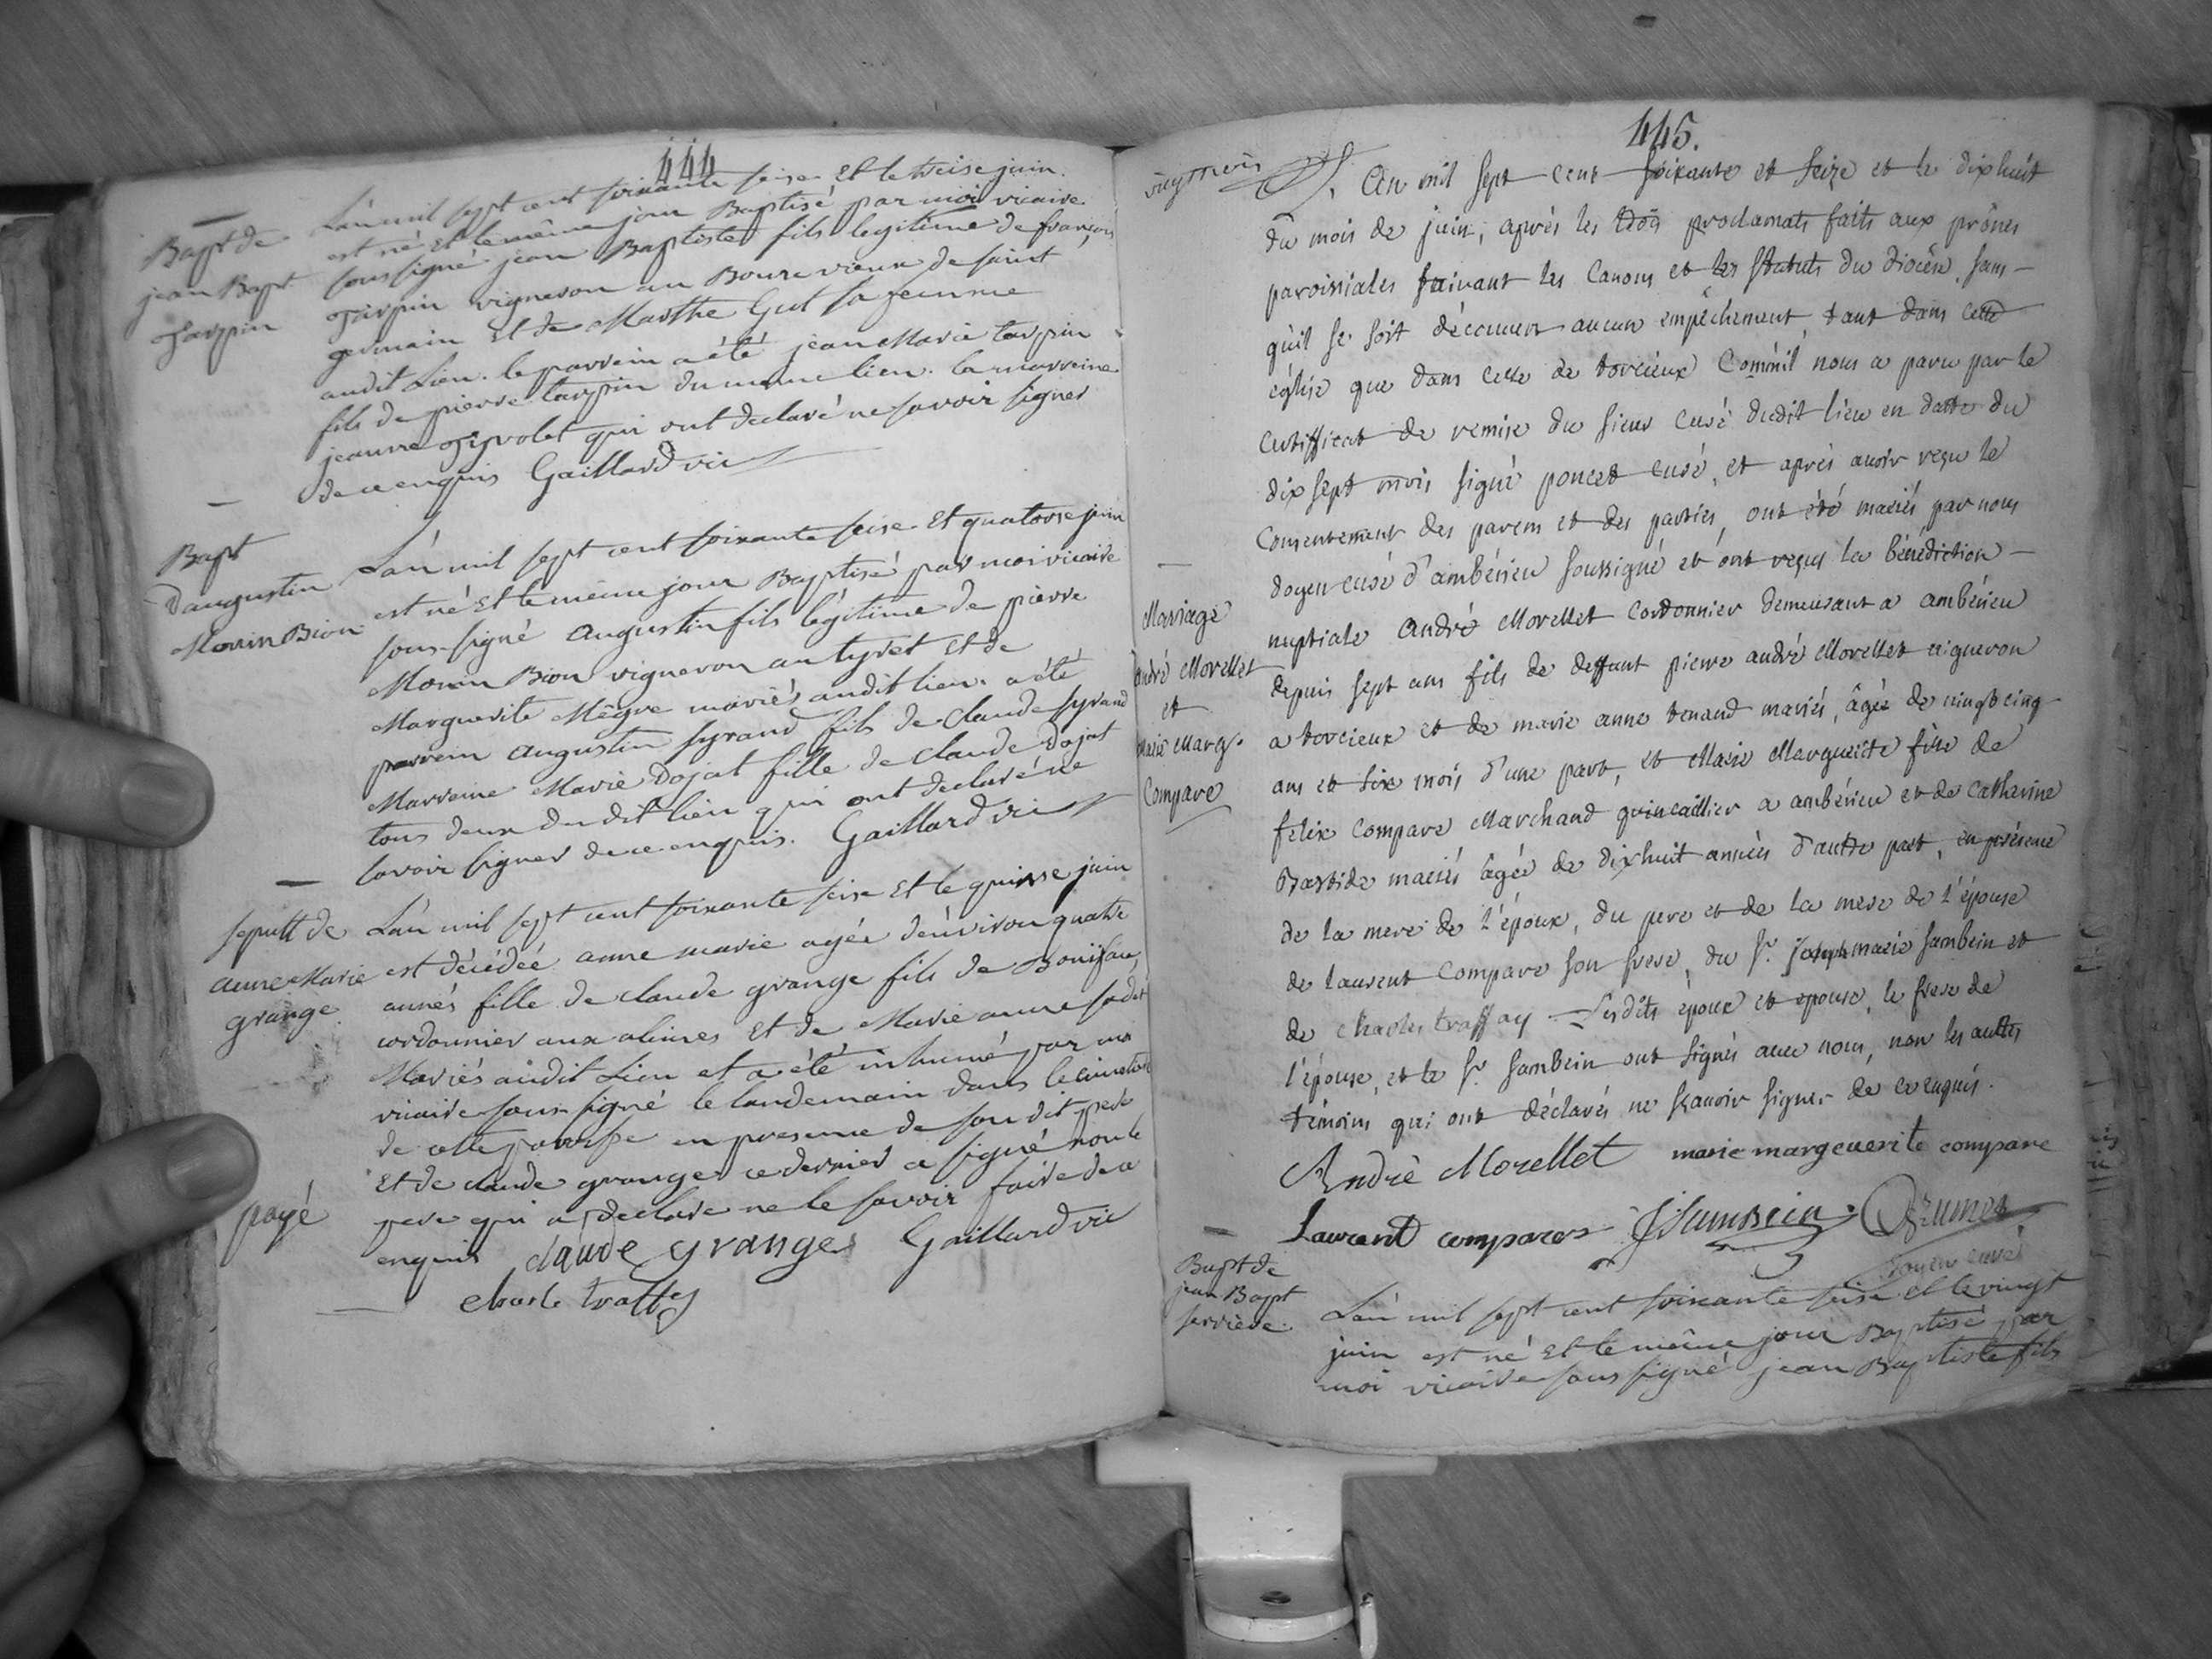 444
Bapt de
jean Bapt
Tarpin
L'an mil sept cent soixante seise et le treise juin
est né et le même jour Baptisé par moi vicaire
sous signé jean Baptiste fils legitime de françois
Tarpin vigneron au Bourc vieux de saint
germain et de Marthe Gut sa femme
audit Lieu. le parrein a été jean Marie tarpin
fils de pierre tarpin du même lieu. la marreine
jeanne qui ont declaré ne savoir signer
de ce enquis Gaillard vic
Bapt
D'augustin
Morin Bion
L'an mil sept cent soixante seise et quatorse juin
est né et le même jour Baptisé par moi vicaire
sous-signé augustin fils légitime de pierre
Morin Bion vigneron au tyret et de
Marguerite Mégre mariés audit lieu. a été
parrein augustin syrand fils de claude syrand
Marreine Marie Dojat fille de claude Dojat
tous deux du dit lieu qui ont declaré ne
savoir signer de ce enquis. Gaillard vic
sepult de
anne Marie
grange
payé
L'an mil sept cent soixante seise et le quinse juin
est décédée anne marie agée d'environ quatre
années fille de claude grange fils de Boniface
cordonnier aux alimes et de Marie anne
Mariés audit Lieu et a été inhumé par moi
vicaire sous-signé le landemain dans le cimetiere
de cette paroisse en presence de son dit pere
et de claude grange ce dernier a signé non le
pere qui a declaré ne le savoir faire de ce
enquis claude grange Gaillard vic
charle traffey
445.
L'an mil sept cent soixante et seize et le dixhuit
du mois de juin, après les trois proclamats faits aux prônes
paroissiales suivant les Canons et les statuts du diocèse, sans
qu'il se soit découvert aucun empêchement, tant dans cette
église que dans celle de torcieux comm'il nous a paru par le
certifficat de remise du sieur curé dudit lieu en datte du
dix sept mois signé poncet curé, et après avoir reçu le
Consentement des parens et des parties, ont été mariés par nous
doyen curé d'ambérieu soussigné et ont reçus la bénédiction
Mariage
André Morellet
et
Marie Marg.
Compare
nuptiale André Morellet cordonnier demeurant a ambérieu
depuis sept ans fils de deffunt pierre andré Morellet vigneron
a torcieux et de marie anne tenand mariés, âgé de vingtcinq
ans et six mois d'une part, et Marie Marguerite fille de
felix Compare Marchand quincaillier a ambérieu et de Catherine
Bastide mariés âgée de dixhuit années d'autre part, en présence
de la mere de l'époux, du pere et de la mere de l'épouse
de laurent Compare son frere, du Sr. joseph marie sambein et
de charles traffay Lesdits époux et epouse, le frere de
l'épouse, et le Sr. sambein ont signés avec nous, non les autres
témoins qui ont déclarés ne scavoir signer de ce enquis.
André Morellet marie margeuerite compare
Laurent compares J Sambein Brunet
doyen curé
Bapt de
jean Bapt
serriere
L'an mil sept cent soixante seise et le vingt
juin est né et le même jour Baptisé par
moi vicaire sous signé jean Baptiste fils